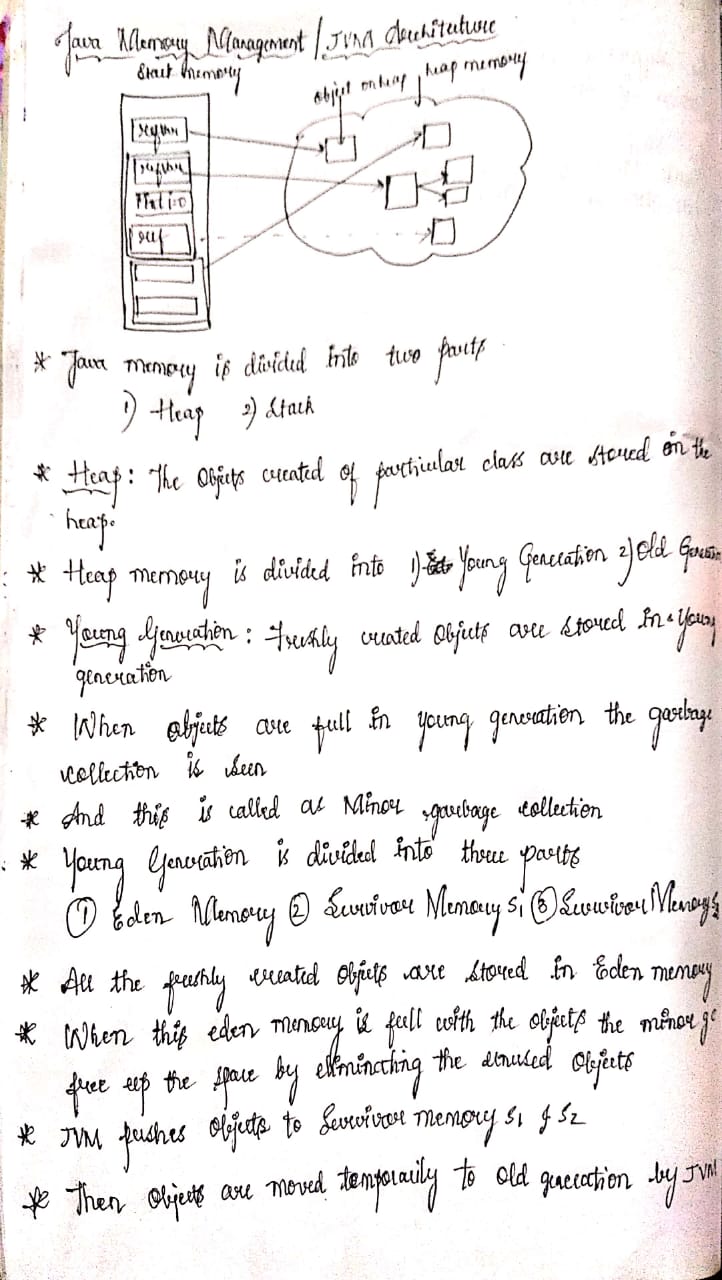 Java Memory Management / JVM Architecture
Stack memory
object on heap, heap memory
ref
* Java memory is divided into two parts
1) Heap 2) Stack
* Heap: The objects created of particular class are stored on the
heap.
* Heap memory is divided into 1) Young Generation 2) Old Generation
* Young Generation: Freshly created objects are stored in a Young
generation
* When objects are full in young generation the garbage
collection is seen
* And this is called as Minor garbage collection
* Young Generation is divided into three parts
① Eden Memory ② Survivor Memory S1 ③ Survivor Memory S2
* All the freshly created objects are stored in Eden memory
* When this eden memory is full with the objects the minor gc
free up the space by eliminating the unused objects
* JVM pushes objects to Survivor memory S1 & S2
* Then objects are moved temporarily to old generation by JVM